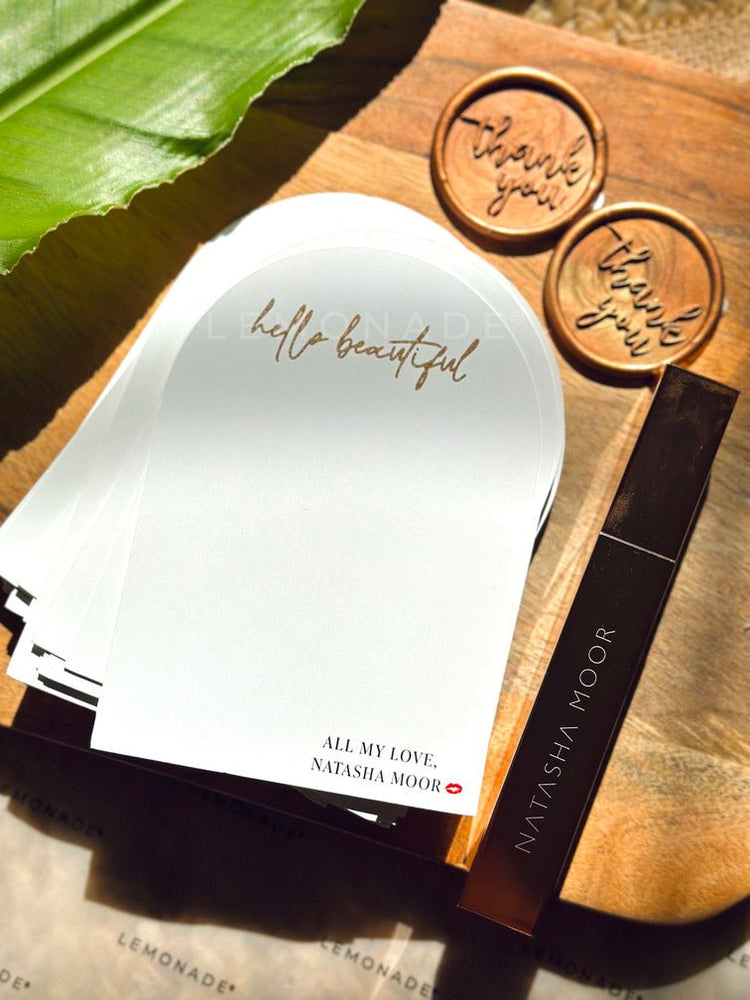 thank
you
thank
you
LEMONADE®
hello beautiful
ALL MY LOVE,
NATASHA MOOR
NATASHA MOOR
LEMONADE®
LEMONADE®
LEMONADE®
LEMONADE®